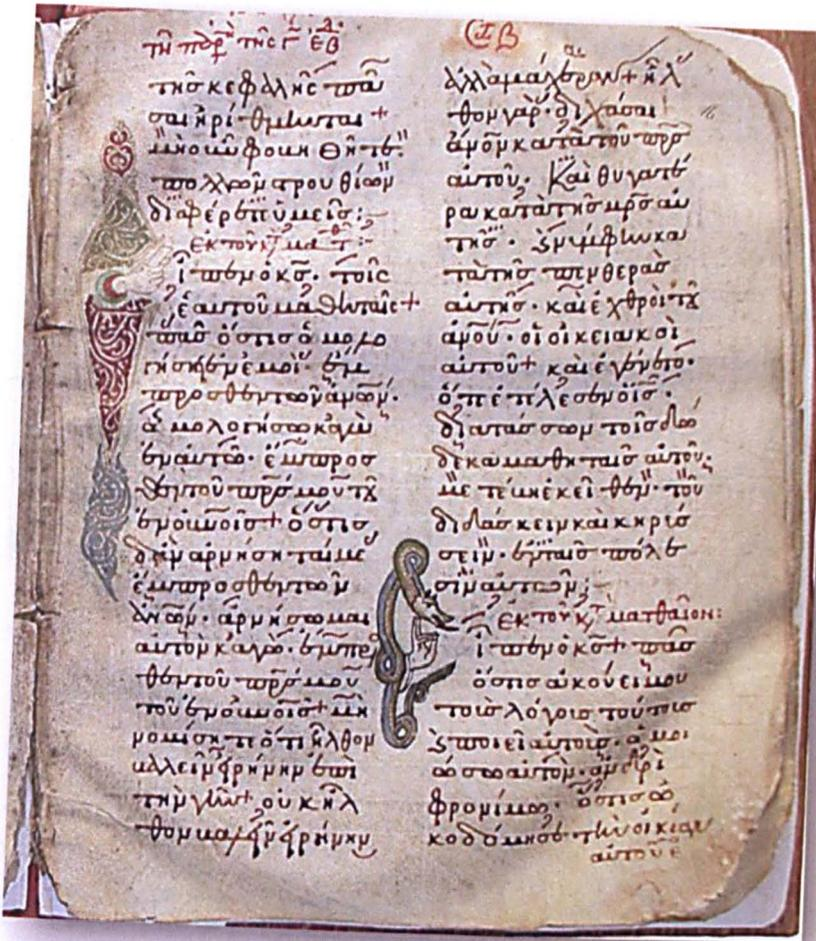 τῆ παρ τῆς Γ ἑβ
τῆς κεφαλῆς πᾶ
σαι ἠρίθμηνται +
μὴ οὖν φοβηθῆτε·
πολλῶν στρουθίων
διαφέρετε ὑμεῖς :
ἐκ τοῦ κτ ματθ
εἶπεν ὁ κς̄· τοῖς
ἑαυτοῦ μαθηταῖς +
πᾶς ὅστις ὁμολο
γήσῃ ἐν ἐμοὶ· ἔμ
προσθεν τῶν ἀνῶν·
ὁμολογήσω κἀγὼ
ἐν αὐτῷ· ἔμπροσ
θεν τοῦ πρς̄ μου τοῦ
ἐν οὐνοῖς + ὅστις
δ' ἂν ἀρνήσηταί με
ἔμπροσθεν τῶν
ἀνῶν· ἀρνήσωμαι
αὐτὸν κἀγὼ· ἔμπρο
θεν τοῦ πρς̄ μου
τοῦ ἐν οὐνοῖς + μὴ
νομίσητι ὅτι ἦλθον
βαλλεῖν εἰρήνην ἐπὶ
τὴν γῆν + οὐκ ἦλ
θον βαλεῖν εἰρήνην
ἀλλὰ μάχαιραν + ἦλ
θον γὰρ· διχάσαι
ἀνον κατὰ τοῦ πρς
αὐτοῦ· Καὶ θυγατέ
ρα κατὰ τῆς μρς αὐ
τῆς· ϗ νύμφην κα
τὰ τῆς πενθερᾶς
αὐτῆς· καὶ ἐχθροὶ τοῦ
ἀνου· οἱ οἰκειακοὶ
αὐτοῦ + καὶ ἐγένετο·
ὅτε ἐτέλεσεν ὁ ις·
διατάσσων τοῖς δώ
δεκα μαθηταῖς αὐτοῦ·
μετέβη ἐκεῖθεν· τοῦ
διδάσκειν καὶ κηρύσ
σειν· ἐν ταῖς πόλε
σιν αὐτῶν :
ἐκ τοῦ κτ ματθαῖον :
εἶπεν ὁ κς̄ + πᾶς
ὅστις ἀκούει μου
τοὺς λόγους τούτους
ϗ ποιεῖ αὐτοὺς· ὁμοι
ώσω αὐτὸν· ἀνδρὶ
φρονίμῳ· ὅστις ᾠ
κοδόμησε τὴν οἰκίαν
αὐτοῦ ἐ